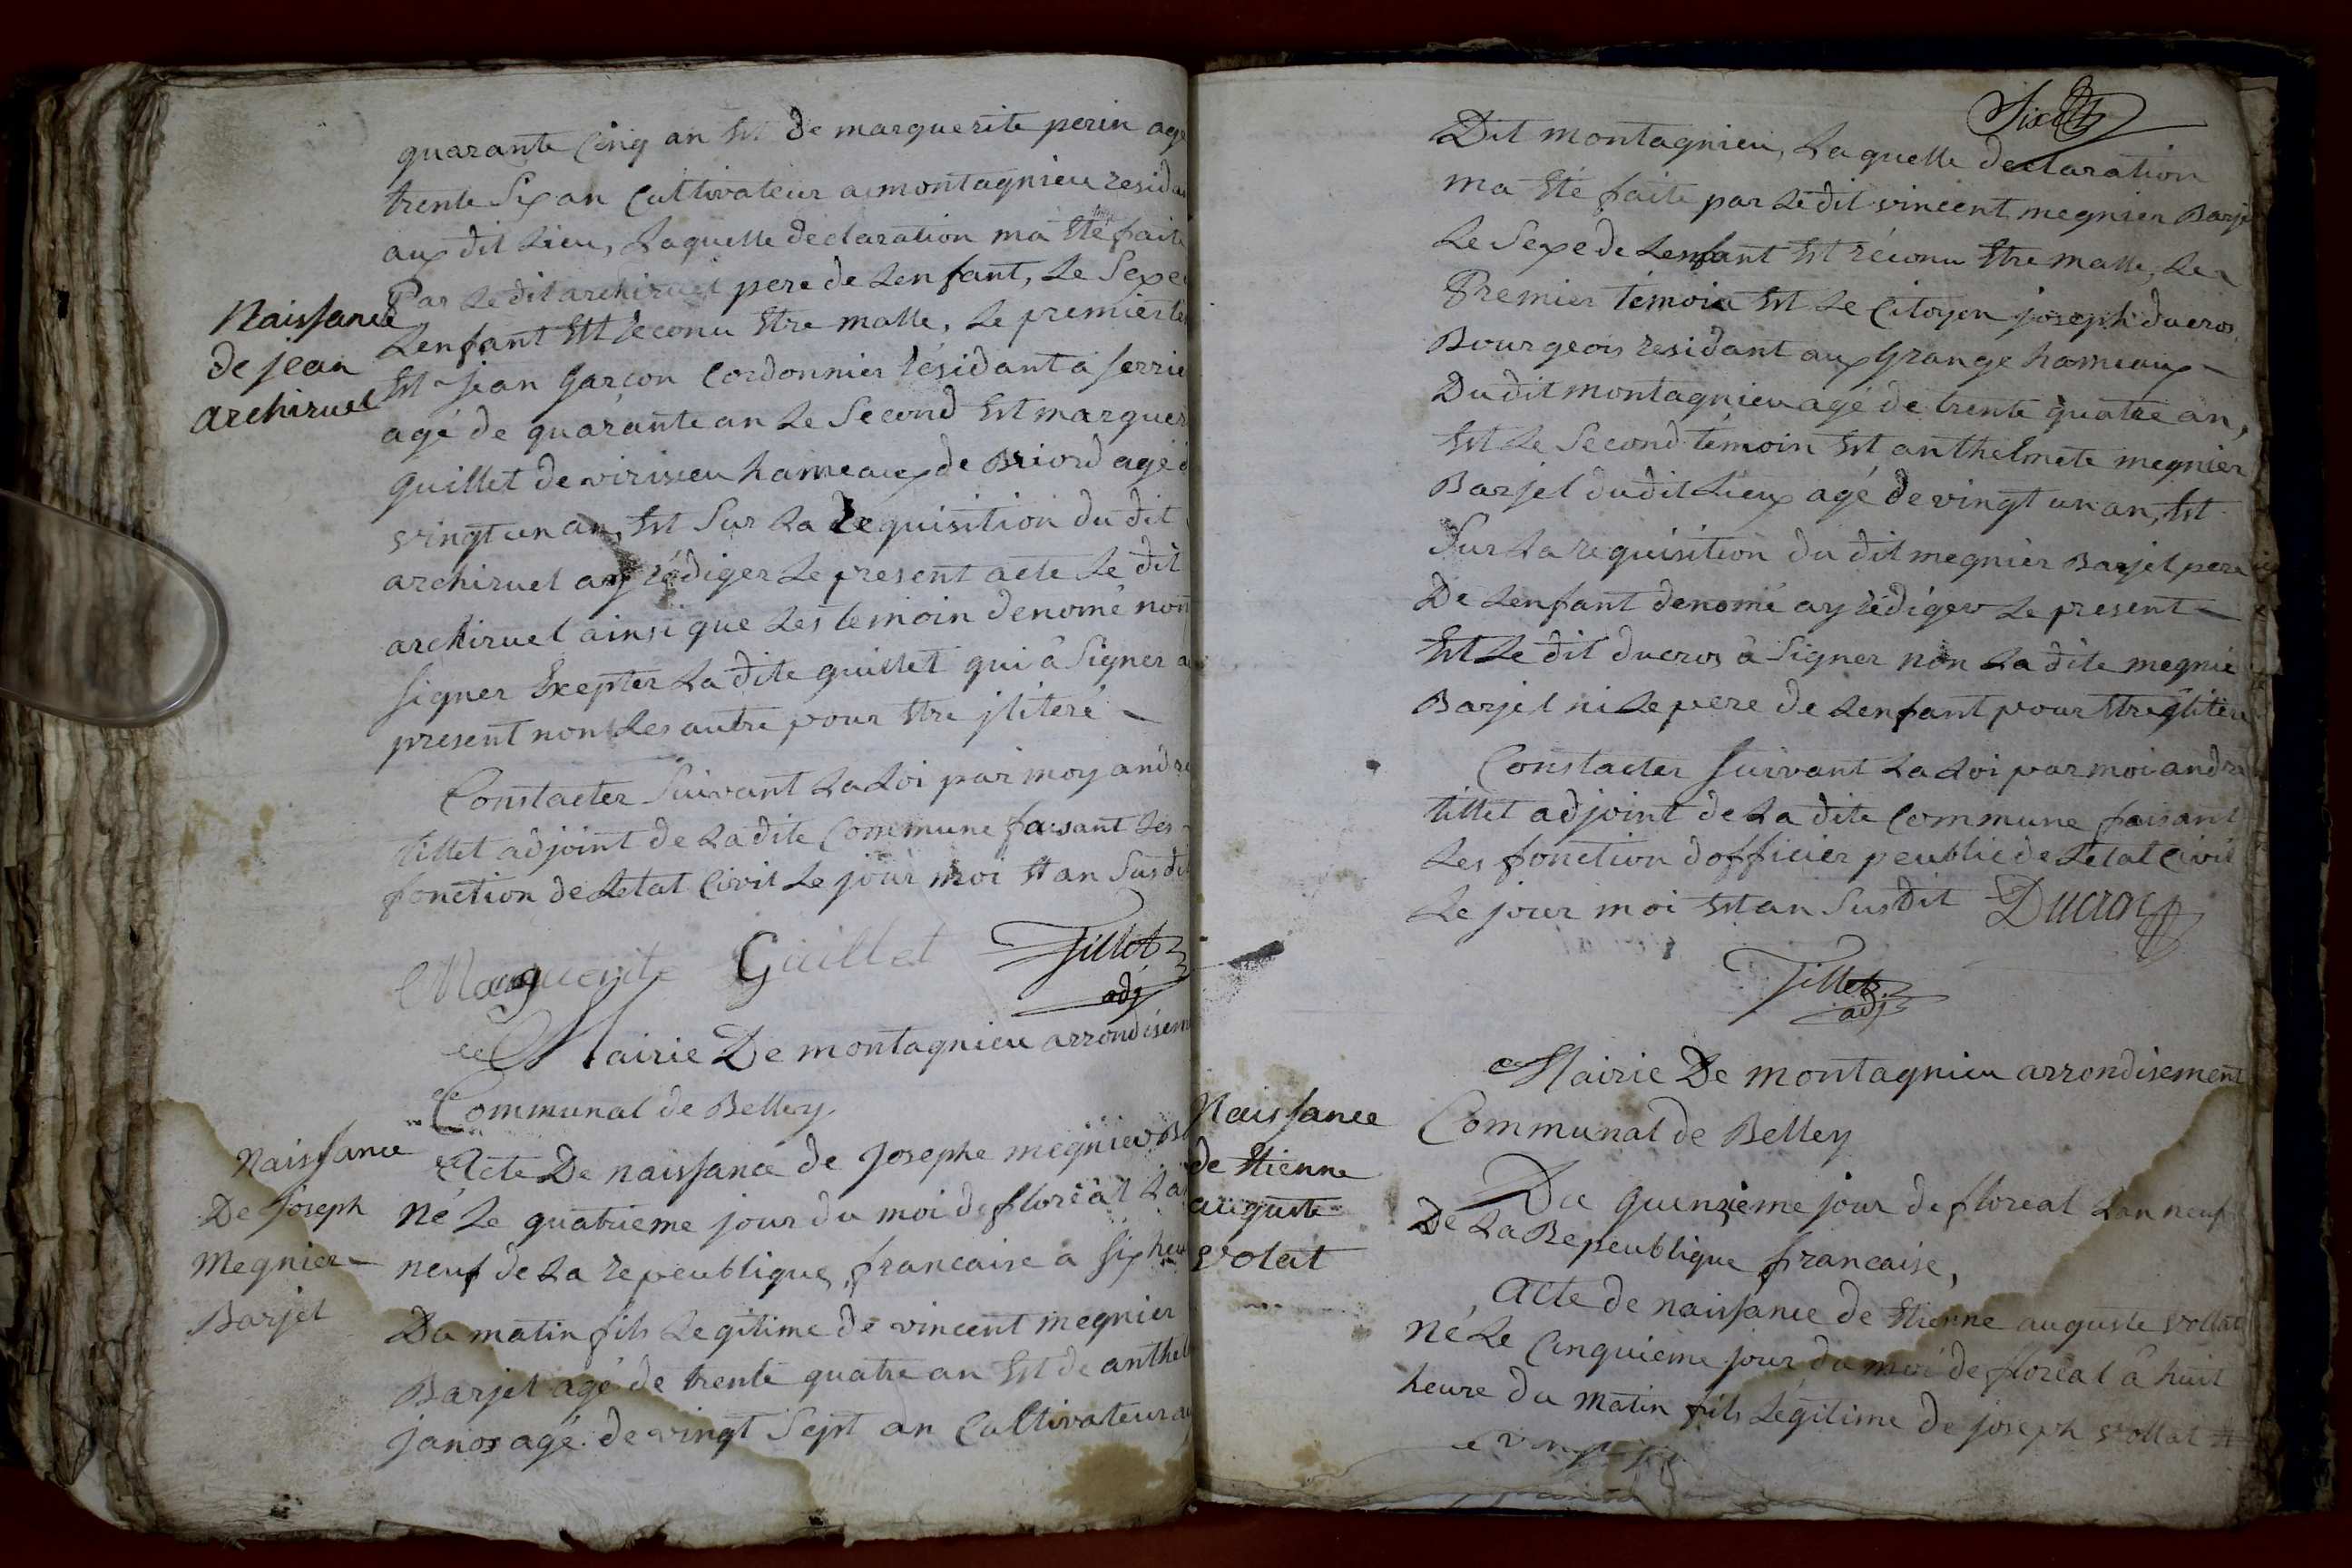 quarante Cinq an Est de marguerite perin agé
trente Six an Cultivateur a montagnieu resida
aux dit Lieu, Laquelle declaration ma Eté faite
Par Le dit archiruel pere de Lenfant, Le Sexe
Naissance
de jean
archiruel
Lenfant Est reconu Etre malle, Le premier te
Est jean garçon Cordonnier résidant a serrie
agé de quarante an Le Second Est marguer
guillet de virisieu hameaux de Briord agé d
vingt un an, Est Sur La requisition du dit
archiruel ay rédiger Le present acte Le dit
archiruel ainsi que Les temoin denomé non
signer Exepter La dite guillet qui à Signer a
present non Les autre pour Etre jlitéré
Constacter Suivant La Loi par moy andre
tillet adjoint de La dite Commune faisant Les
fonction de Letat Civil Le jour moi Et an Susdit
Marguerite Guillet Tillet
adj
Mairie De montagnieu arrondisem
Communal de Belley
Naissance
De joseph
Megnier
Barjel
Acte De naissance de Josephe megnier B
Né Le quatrieme jour du moi de floréal La
neuf de La repeublique francaise a six heu
Du matin fils Legitime de vincent megnier
Barjel agé de trente quatre an Est de anthel
janos agé de vingt Sept an Cultivateur au
Six
Dit montagnieu, Laquelle declaration
ma Eté faite par Le dit vincent megnier Barje
Le Sexe de Lenfant Est réconu Etre malle, Le
Premier témoin Est Le Citoyen joseph ducros
Bourgeois residant aux Grange hameaux
Du dit montagnieu agé de trente quatre an,
Est Le Second témoin Est anthelmete megnier
Barjel du dit Lieux agé de vingt un an, Est
Sur La requisition du dit megnier Barjel pere
De Lenfant denomé ay rédiger Le present
Est Le dit ducros à Signer non La dite megnie
Barjel ni Le pere de Lenfant pour Etre jlitéré
Constacter suivant La Loi par moi andre
tillet adjoint de La dite Commune faisant
Les fonction dofficier peublic de Letat Civil
Le jour moi Est an Susdit Ducros
Tillet
adj
Mairie De montagnieu arrondisement
Communal de Belley
Du quenzieme jour de floreal Lan neuf
De La Repeublique francaise,
Naissance
de Etienne
auguste
volat
Acte de naissance de Etienne auguste vollat
Né Le Cinquieme jour du moi de floréal à huit
heure du matin fils Légitime de joseph vollat Et